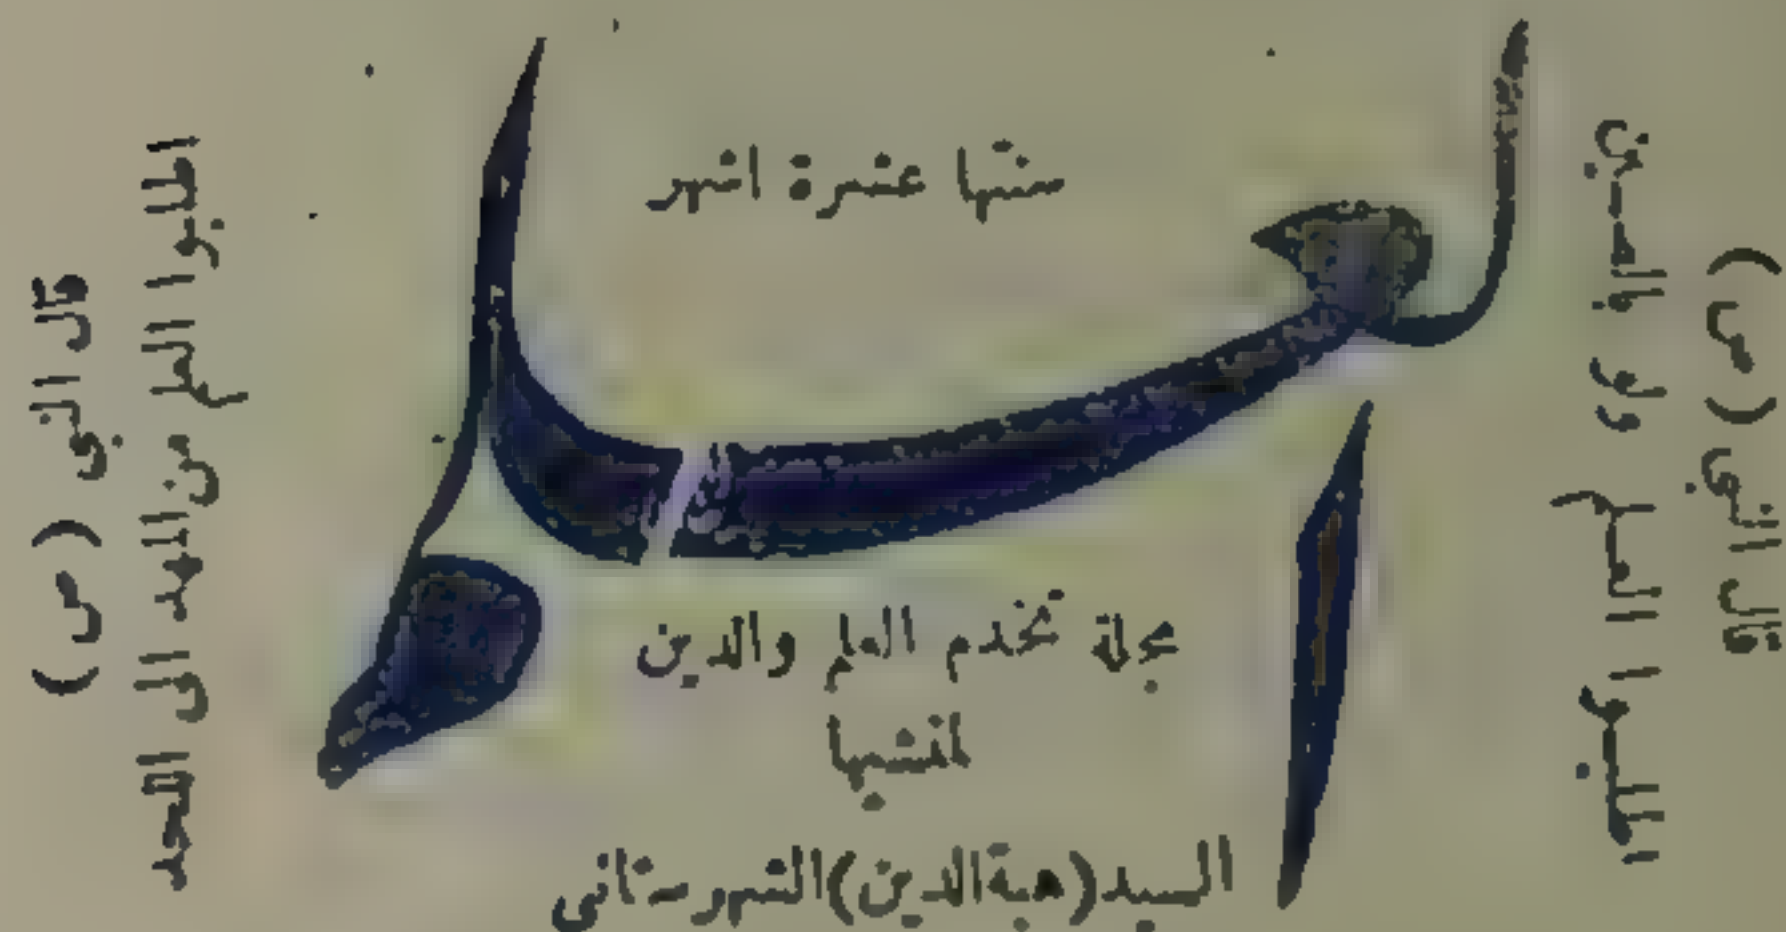 قال النبي (ص)
اطلبوا العلم ولو بالصين
سنتها عشرة اشهر
العلم
مجلة تخدم العلم والدين
لمنشيها
السيد (هبةالدين) الشهرستاني
قال النبي (ص)
اطلبوا العلم من المهد الى اللحد